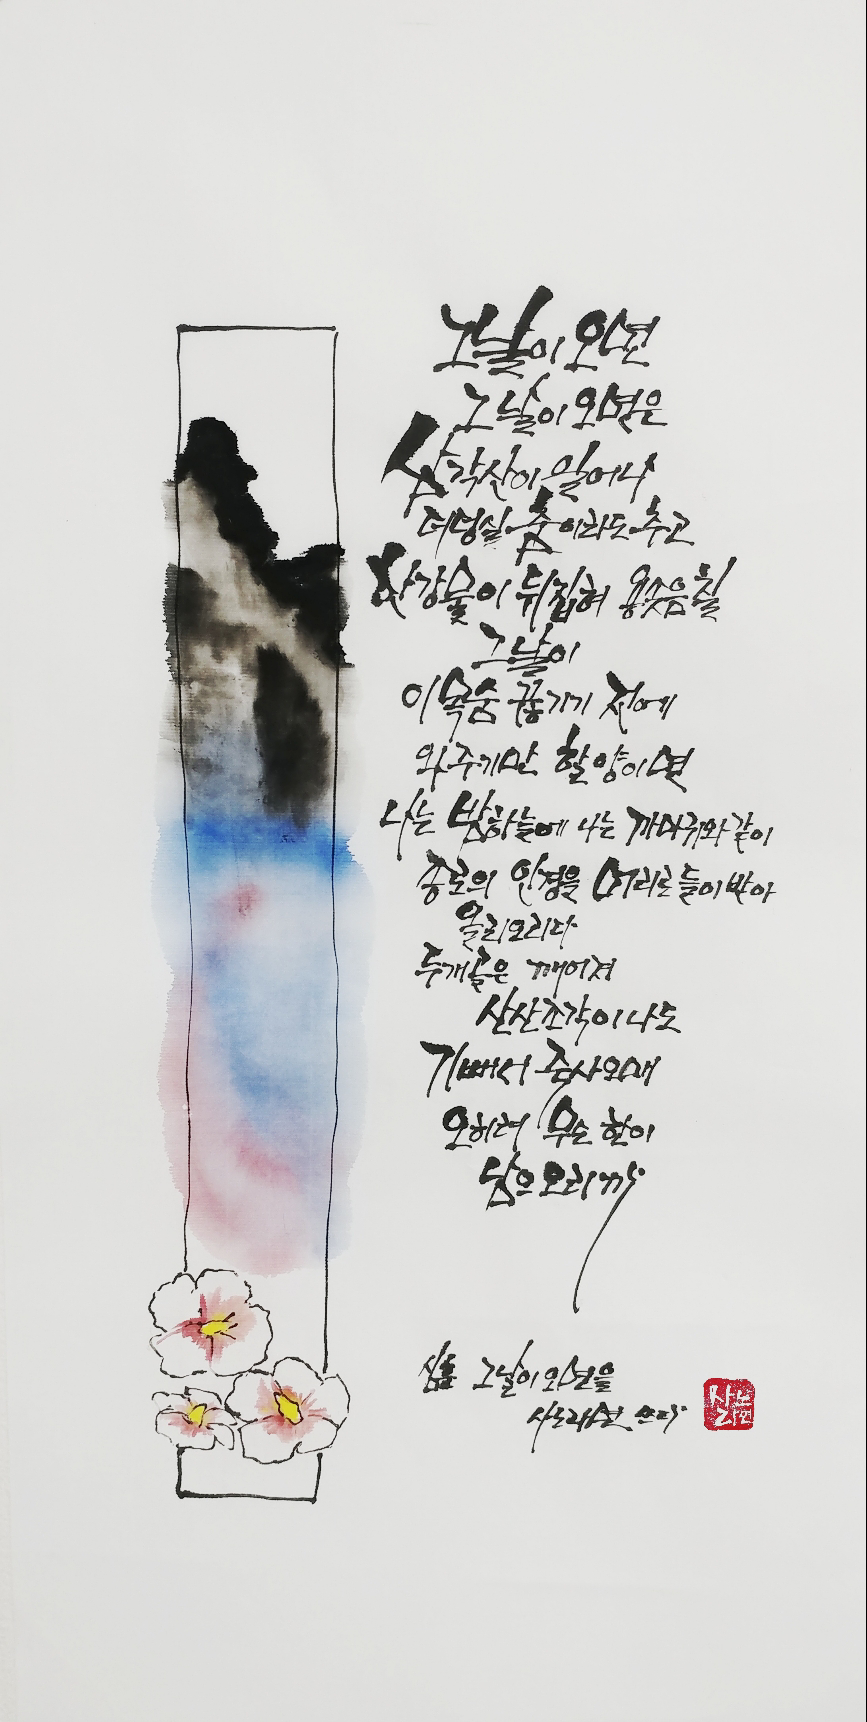 그날이 오면
그날이 오면은
삼각산이 일어나
더덩실 춤이라도 추고
한강물이 뒤집혀 용솟음칠
그날이
이 목숨 끊기기 전에
와주기만 할양이면
나는 밤하늘에 나는 까마귀와 같이
종로의 인경을 머리로 들이받아
울리오리다
두개골은 깨어져
산산조각이 나도
기뻐서 죽사오매
오히려 무슨 한이
남으오리까
심훈 그날이 오면을
사노라면 쓰다
사노라면